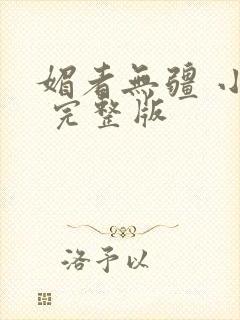 媚者無疆 小
完整版
洛予以